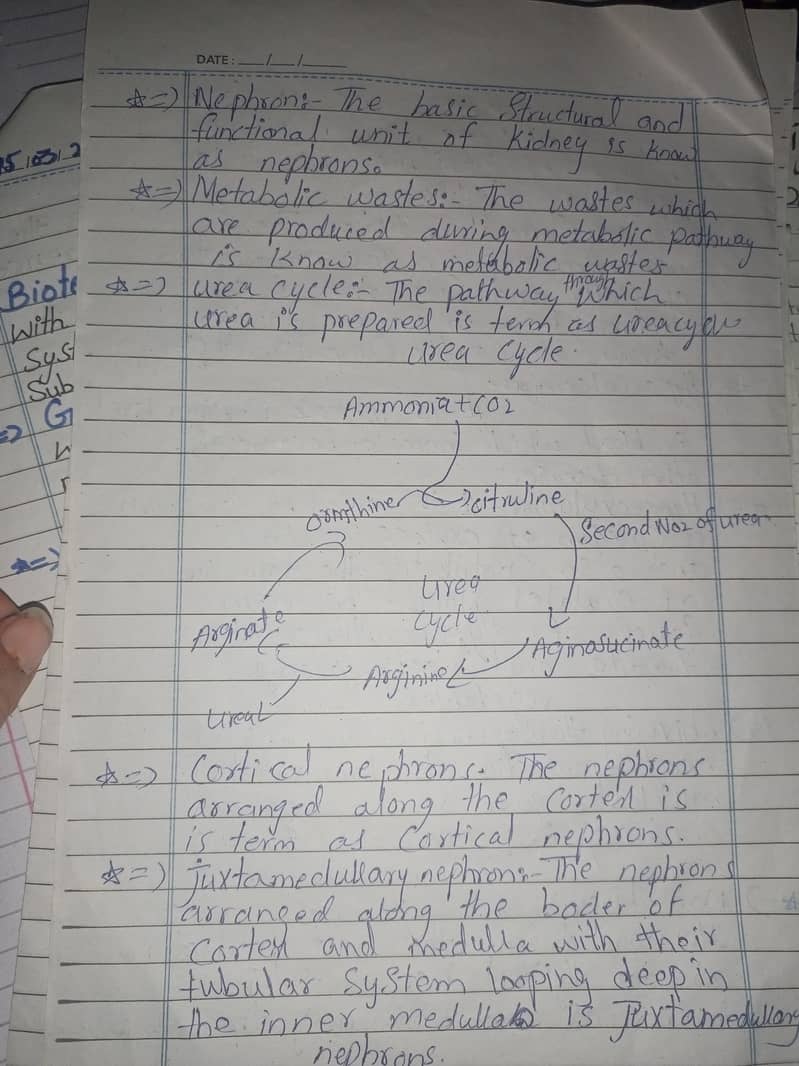 DATE: __/__/__
☆=> Nephron:- The basic Structural and
functional unit of kidney is know
as nephrons.
☆=> Metabolic wastes:- The wastes which
are produced during metabolic pathway
is know as metabolic wastes
☆=> urea cycle:- The pathway through which
urea is prepared is term as ureacycle
Urea cycle.
Ammonia+CO2
Ornithine citruline
Second No2 of urea
Urea
Cycle
Arginate
Aginosucinate
Arginine
Urea
☆=> Cortical nephrons. The nephrons
arranged along the Cortex is
is term as Cortical nephrons.
☆=> Juxtamedullary nephron:- The nephrons
arranged along the boder of
Cortex and medulla with their
tubular System looping deep in
the inner medulla is Juxtamedullary
nephrons.
5/03/2
Biote
With
Syst
Sub
=> G
=>